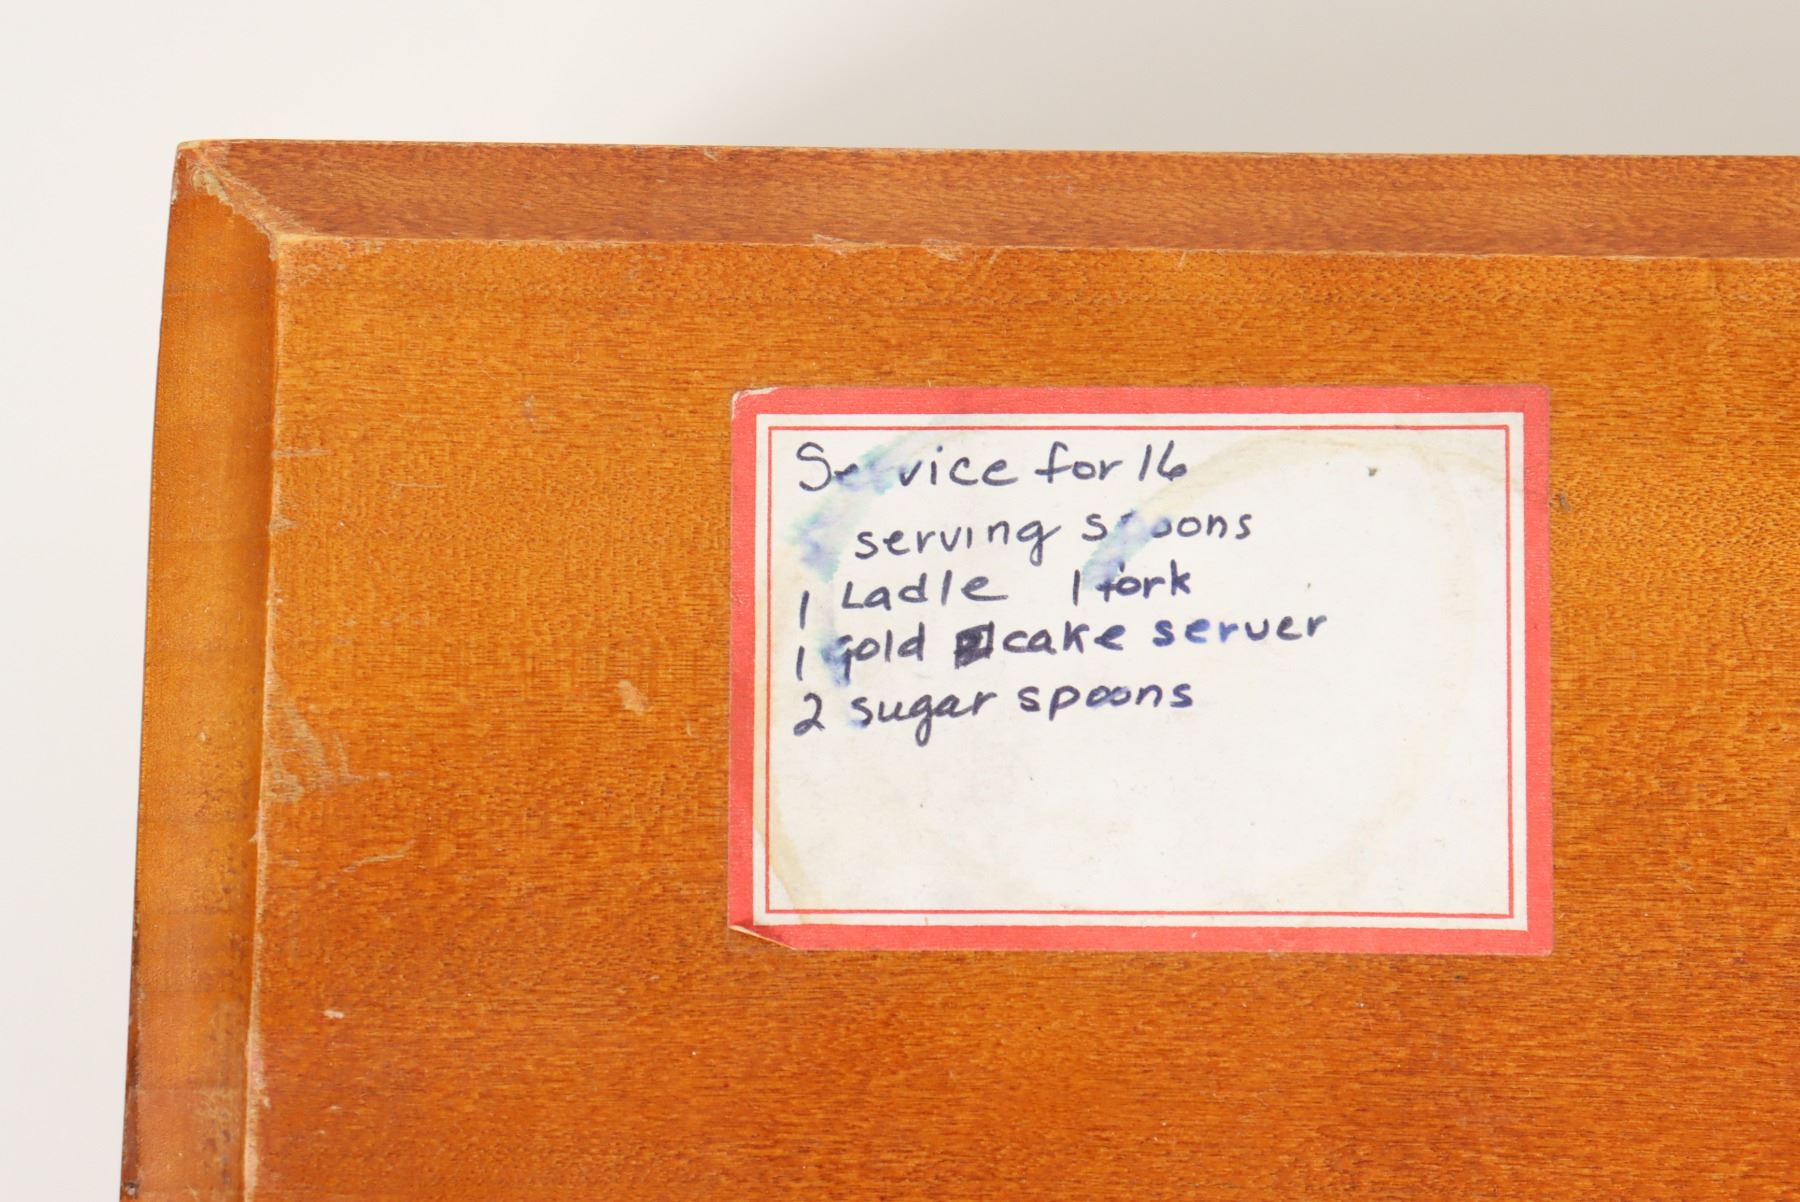 Service for 16
serving spoons
1 Ladle 1 fork
1 gold cake server
2 sugar spoons